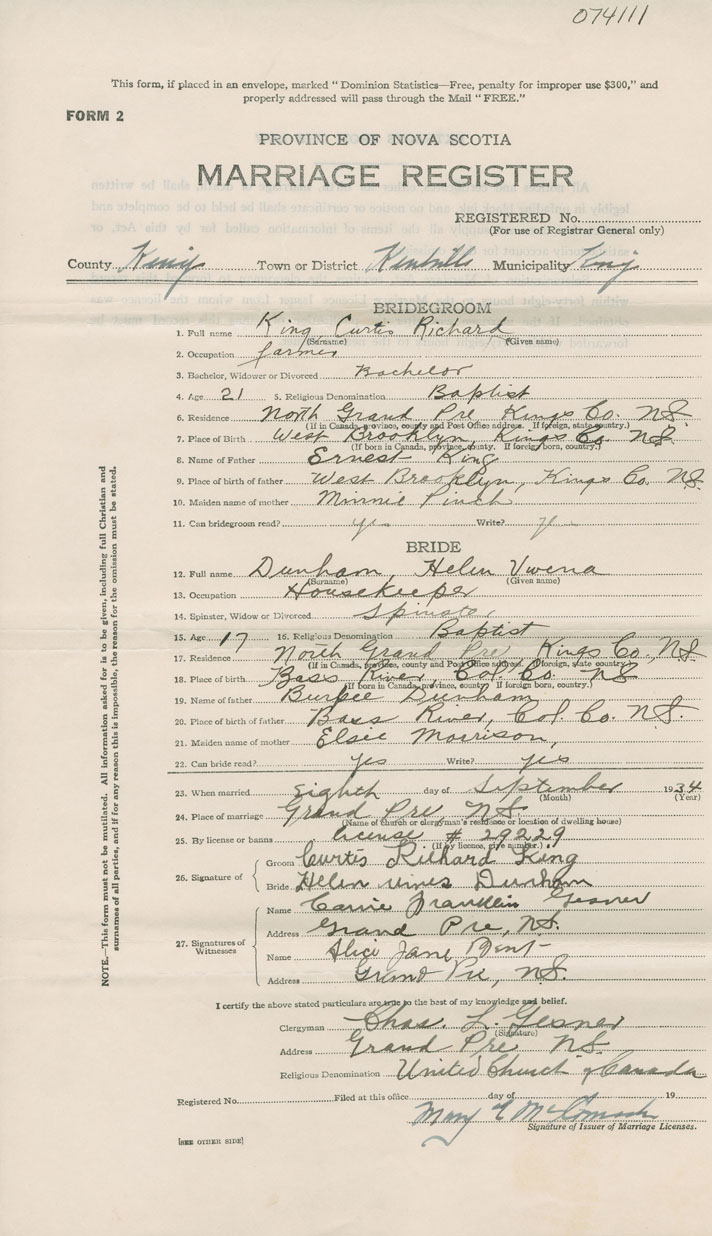 074111
This form, if placed in an envelope, marked " Dominion Statistics—Free, penalty for improper use $300," and
properly addressed will pass through the Mail " FREE."
FORM 2
PROVINCE OF NOVA SCOTIA
MARRIAGE REGISTER
REGISTERED No.
(For use of Registrar General only)
County Kings Town or District Kentville Municipality Kings
BRIDEGROOM
1. Full name King, Curtis Richard
(Surname) (Given name)
2. Occupation farmer
3. Bachelor, Widower or Divorced Bachelor
4. Age 21 5. Religious Denomination Baptist
6. Residence North Grand Pre, Kings Co. N.S.
(If in Canada, province, county and Post Office address. If foreign, state country.)
7. Place of Birth West Brooklyn, Kings Co. N.S.
(If born in Canada, province, county. If foreign born, country.)
8. Name of Father Ernest King
9. Place of birth of father West Brooklyn, Kings Co. N.S.
10. Maiden name of mother Minnie Pinch
11. Can bridegroom read? yes Write? yes
BRIDE
12. Full name Dunham, Helen Vwena
(Surname) (Given name)
13. Occupation Housekeeper
14. Spinster, Widow or Divorced Spinster
15. Age 17 16. Religious Denomination Baptist
17. Residence North Grand Pre, Kings Co., N.S.
(If in Canada, province, county and Post Office address. If foreign, state country.)
18. Place of birth Bass River, Col. Co. N.S.
(If born in Canada, province, county. If foreign born, country.)
19. Name of father Burpee Dunham
20. Place of birth of father Bass River, Col. Co. N.S.
21. Maiden name of mother Elsie Morrison,
22. Can bride read? yes Write? yes
23. When married eighth day of September 1934
(Month) (Year)
24. Place of marriage Grand Pre, N.S.
(Name of church or clergyman's residence or location of dwelling house)
25. By license or banns license # 29229
(If by licence, give number.)
26. Signature of
Groom Curtis Richard King
Bride Helen Dunham
27. Signatures of Witnesses
Name Carrie Franklin Gesner
Address Grand Pre, N.S.
Name Alice Jane Bent
Address Grand Pre, N.S.
I certify the above stated particulars are true to the best of my knowledge and belief.
Clergyman Chas. L. Gesner
(Signature)
Address Grand Pre N.S.
Religious Denomination United Church of Canada
Registered No. Filed at this office day of 19
Mary
Signature of Issuer of Marriage Licenses.
[SEE OTHER SIDE]
NOTE.—This form must not be mutilated. All information asked for is to be given, including full Christian and
surnames of all parties, and if for any reason this is impossible, the reason for the omission must be stated.